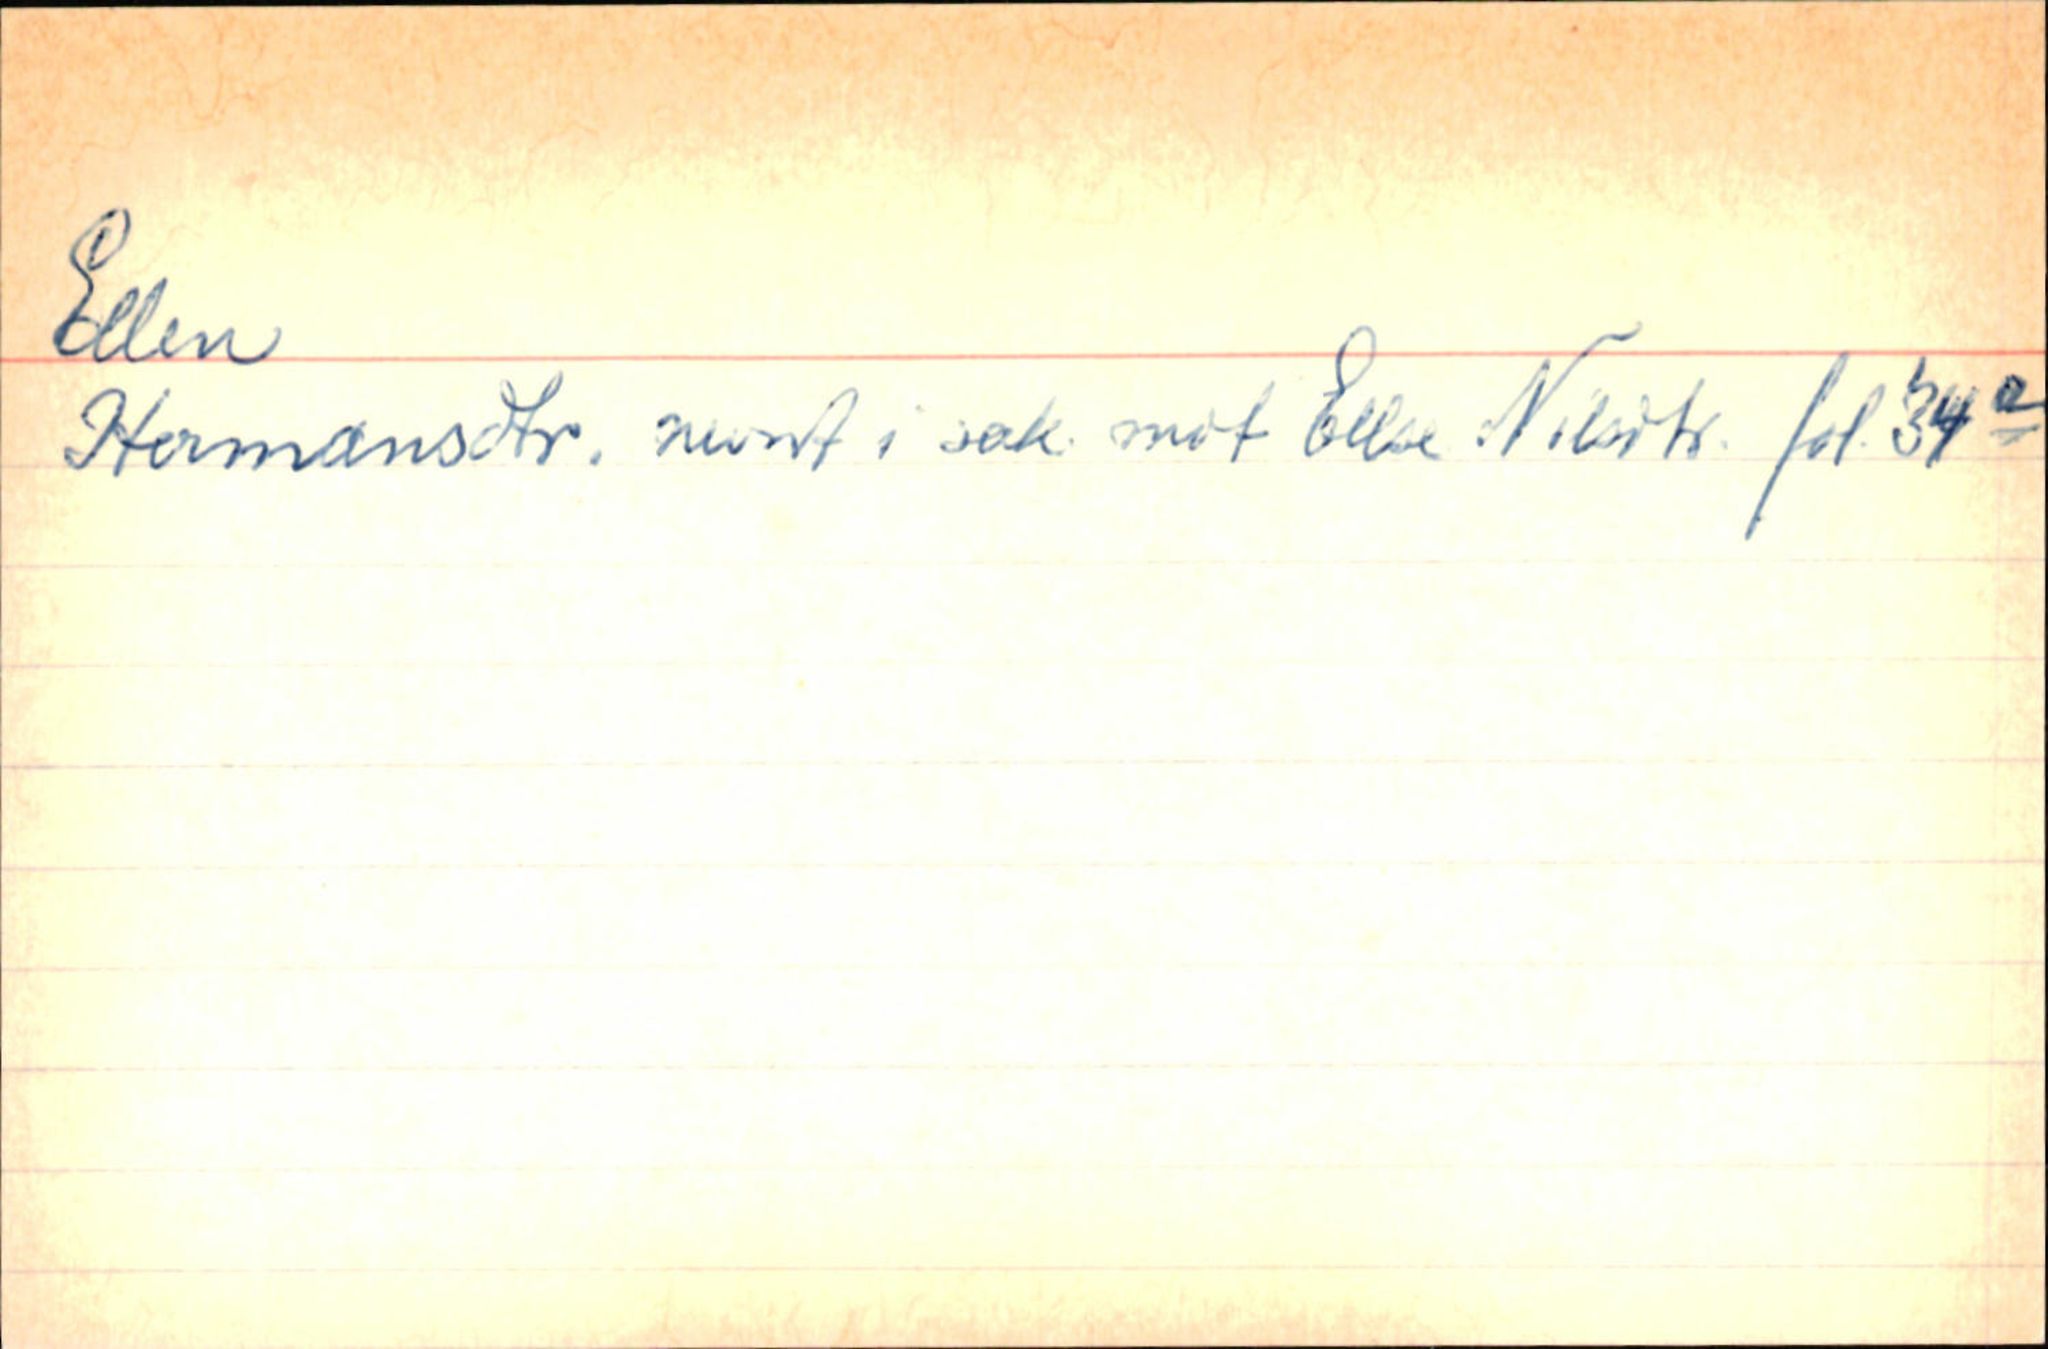 Ellen
Hermansdtr. nevnt i sak mot Ellse Nilsdtr. fol. 34a